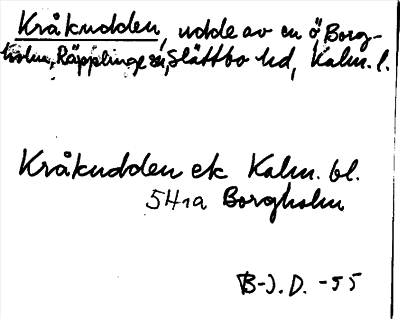 Kråkudden, udde av en ö Borg-
holm, Räpplinge sn, Slättbo hd, Kalm. l.
Kråkudden ek Kalm. bl.
5H1a Borgholm
B-J. D. -55